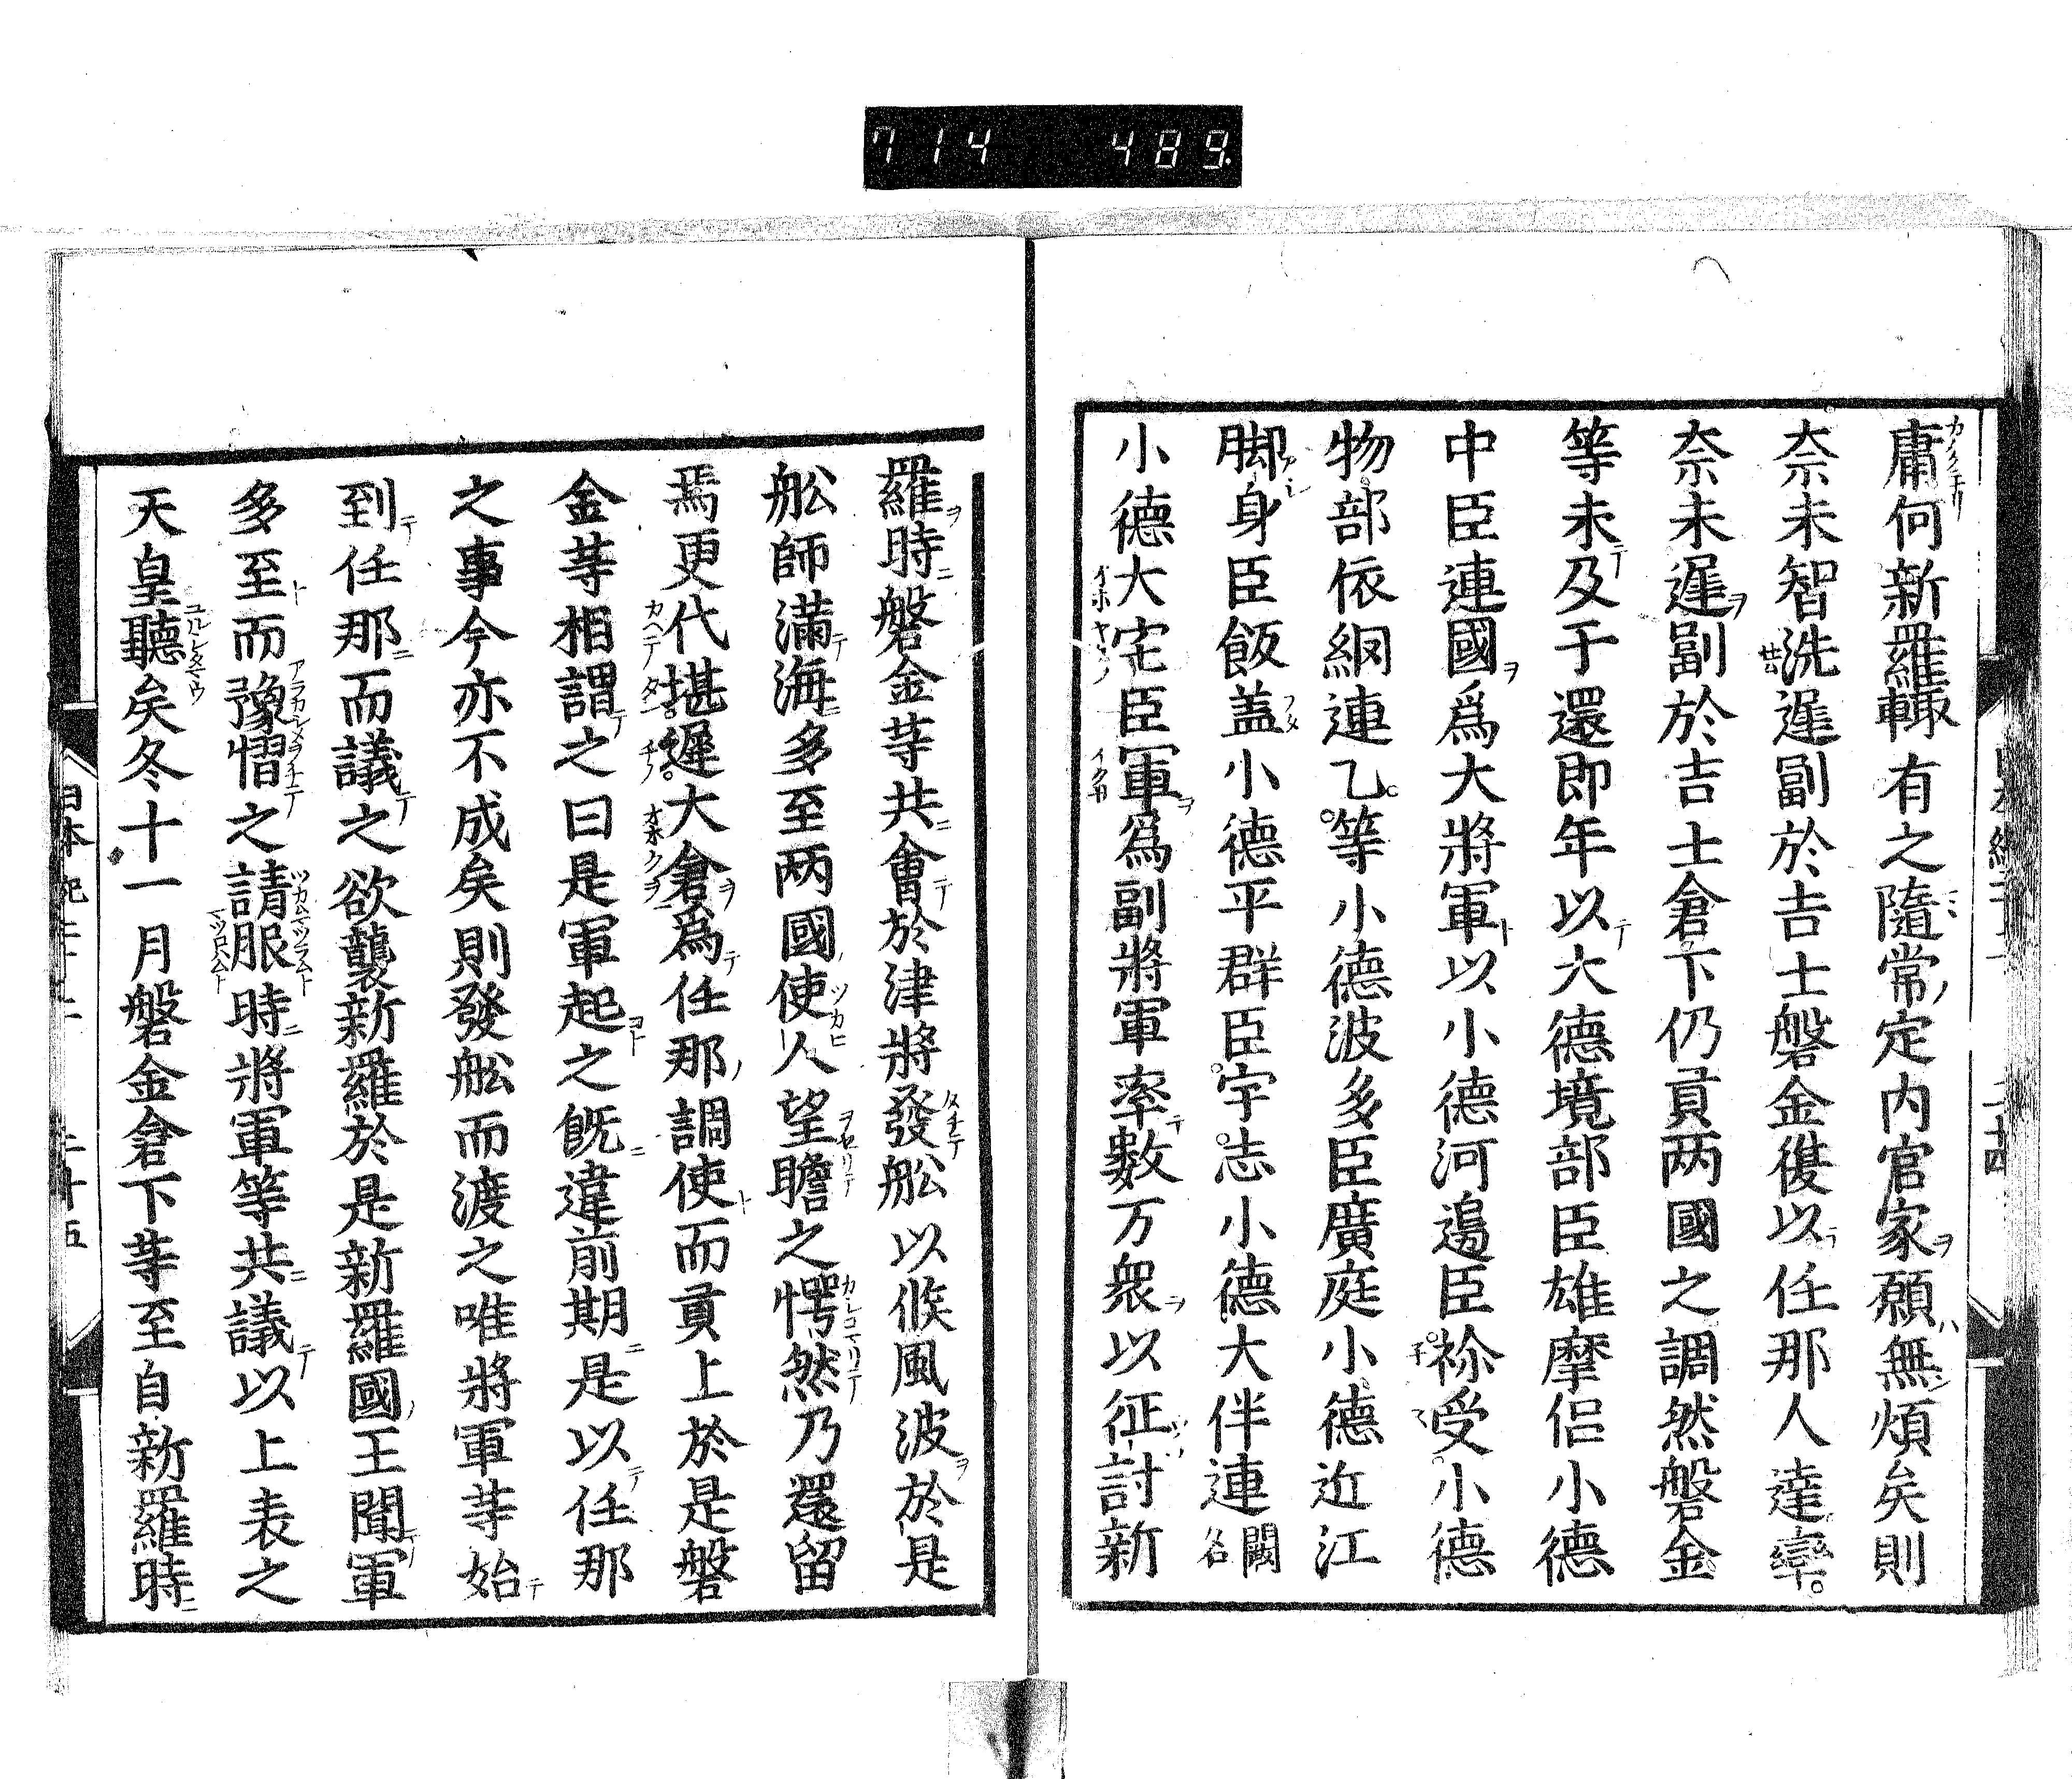 714 489
庸何新羅輙有之隨常定内官家願無煩矣則
奈末智洗遲副於吉士磐金復以任那人達率
奈末遲副於吉士倉下仍貢两國之調然磐金
等未及于還即年以大德境部臣雄摩侶小德
中臣連國爲大將軍以小德河邉臣祢受小德
物部依網連乙等小德波多臣廣庭小德近江
脚身臣飯盖小德平群臣宇志小德大伴連闕名
小德大宅臣軍爲副將軍率數万衆以征討新
羅時磐金等共會於津將發舩以候風波於是
舩師滿海多至两國使人望瞻之愕然乃還留
焉更代堪遲大倉爲任那調使而貢上於是磐
金等相謂之曰是軍起之既違前期是以任那
之事今亦不成矣則發舩而渡之唯將軍等始
到任那而議之欲襲新羅於是新羅國王聞軍
多至而豫慴之請服時將軍等共議以上表之
天皇聽矣冬十一月磐金倉下等至自新羅時
日本紀二十二 二十五